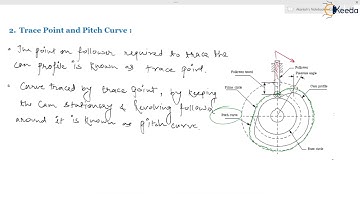 Keeda
2. Trace Point and Pitch Curve :
• The point on follower required to trace the
cam profile is known as trace point.
• Curve traced by trace point, by keeping
the cam stationary & revolving follower
around it is known as pitch curve.
Follower
Pressure angle
Cam profile
Prime circle
Pitch curve
Base circle